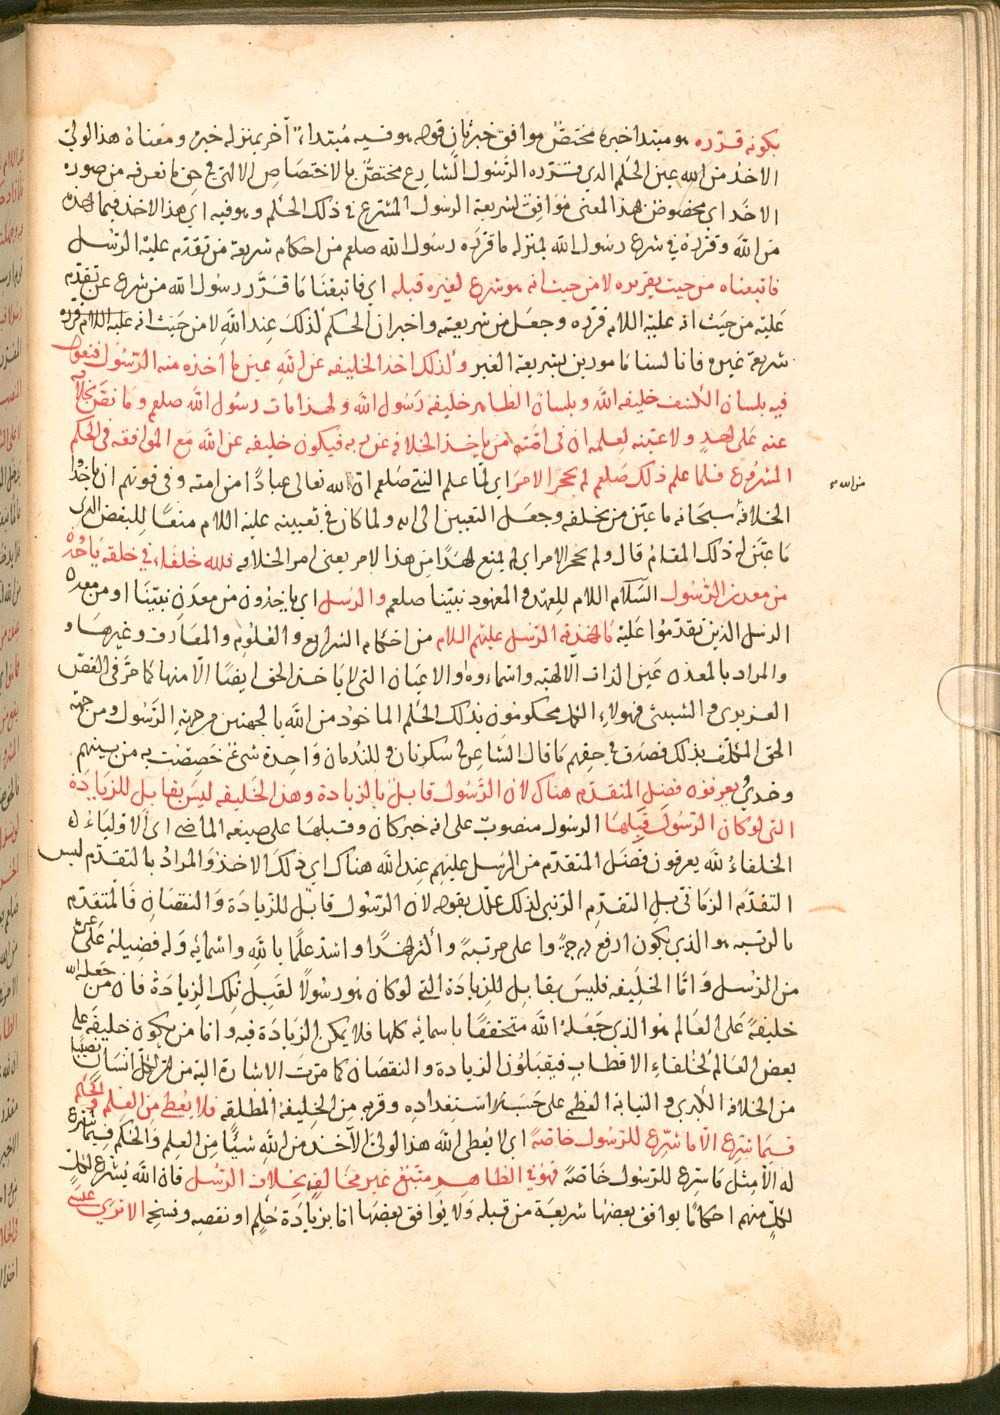 بكونه قرّره هو مبتدا خبره مختصّ موافق خبر ثان قوله هو فيه مبتداء آخر بمنزله خبره ومعناه هذا الولى
الاخذ من الله عين الحكم الذى قرّره الرّسول الشارع مختصّ بالاختصاص الالهى فى حق ما نعرفه من صورة
الاخذ اى مخصوص بهذا المعنى موافق لشريعة الرسول المشرّع فى ذلك الحكم وهو فيه اى هذا الاخذ فيما اخذه
من الله وقرّره فى شرع رسول الله بمنزله ما قرّره رسول الله صلعم من احكام شريعة من تقدّم عليه الرّسل
فاتبعناه من حيث تقريره لا من حيث انه هو شرع لغيره قبله اى فاتبعنا ما قرّر رسول الله من شرع من تقدّم
عليه من حيث انه عليه اللام قرّره وجعل من شريعته واخبر ان الحكم كذلك عند الله لا من حيث انه عليه اللام قرره
شريعة غيره فانا لسنا مامورين بشريعة الغير وكذلك اخذ الخليفه عن الله عين ما اخذه منه الرّسول فنقول
فيه بلسان الكشف خليفه الله وبلسان الظاهر خليفه رسول الله ولهذا مات رسول الله صلعم وما نصّ بخلافه
عنه على احد ولا عيّنه لعلمه ان فى امّته من ياخذ الخلافه عن ربه فيكون خليفه عن الله مع الموافقه فى الحكم
المشروع فلما علم ذلك صلعم لم يحجر الامر اى لمّا علم النبى صلعم ان الله تعالى عبادًا من امته وفى قوتهم ان ياخذوا
من الله
الخلافة سبحانه ما عيّن من يخلفه وجعل التعيين الى الله ولما كان فى تعيينه عليه اللام منعًا للبعض الذى
ما عيّن له ذلك المقام قال ولم يحجر الامر اى لم يمنع احدًا من هذا الامر يعنى امر الخلافه فلله خلفاء فى خلقه ياخذون
من معدن الرّسول السّلام اللام للعهد والمعهود نبيّنا صلعم والرسل اى ياخذون من معدن نبيّنا او من معدن
الرسل الذين تقدّموا عليه ما اخذته الرّسل عليهم اللام من احكام الشرايع والعلوم والمعارف وغيرها و
والمراد بالمعدن عين الذات الالهيّه واسماءوه والاعيان التى لا ياخذ الحق ايضًا الّا منها كما مرّ فى الفصّ
العزيرى والشيثى فهولاء الكل محكومون بذلك الحكم الماخوذ من الله بالجهتين من جهة الرّسول ومن جهة
الحق المكلّف بذلك فصدق فى حقهم ما قال الشاعر لى سكرتان وللندمان واحدة شىء خصصت به من بينهم
وحدى ويعرفون فضل المتقدّم هناك لان الرّسول قابل بالزيادة وهذا الخليفه ليس بقابل للزيادة
التى لو كان الرّسول قبلها الرسول منصوب على انه خبر كان وقبلها على صيغه الماضى اى الاولياء
الخلفاء لله يعرفون فضل المتقدّم من الرسل عليهم عند الله هناك اى ذلك الاخذ والمراد بالتقدّم ليس
التقدّم الزمانى بل التقدم الرّتبى لذلك علّله بقوله لان الرّسول قابل للزيادة والنقصان فالمتقدّم
بالرتبه هو الذى يكون ارفع درجة واعلى مرتبةً واكثر اخذًا واشد علمًا بالله واسمائه وله فضيلة على غيره
من الرّسل وامّا الخليفه فليس بقابل للزيادة التى لو كان هو رسولًا لقبل تلك الزيادة فان من جعله الله
خليفةً على العالم هو الذى جعله الله متحققًا باسمائه كلها فلا يمكن الزيادة فيه واما من يكون خليفه على
بعض العالم كخلفاء الاقطاب فيقبلون الزيادة والنقصان كما مرّت الاشارة اليه من ان لكل انسان نصيبًا
من الخلافه الكبرى والنيابه العظمى على حسب استعداده وقربه من الخليفه المطلقه فلا يعطى من العلم والحكم
فيما شرع الّا ما شرّع للرسول خاصّةً اى لا يعطى الله هذا الولى الاخذ من الله شيئًا من العلم والحكم فيما شرع
له الّا مثل ما شرع للرّسول خاصّةً فهو فى الظاهر متبع غير مخالف بخلاف الرّسل فان الله يشرع لكل
لكل منهم احكامًا يوافق بعضها شريعة من قبله ولا يوافق بعضها اما بزيادة حكم او نقصه ونسخه الا ترى عيسى